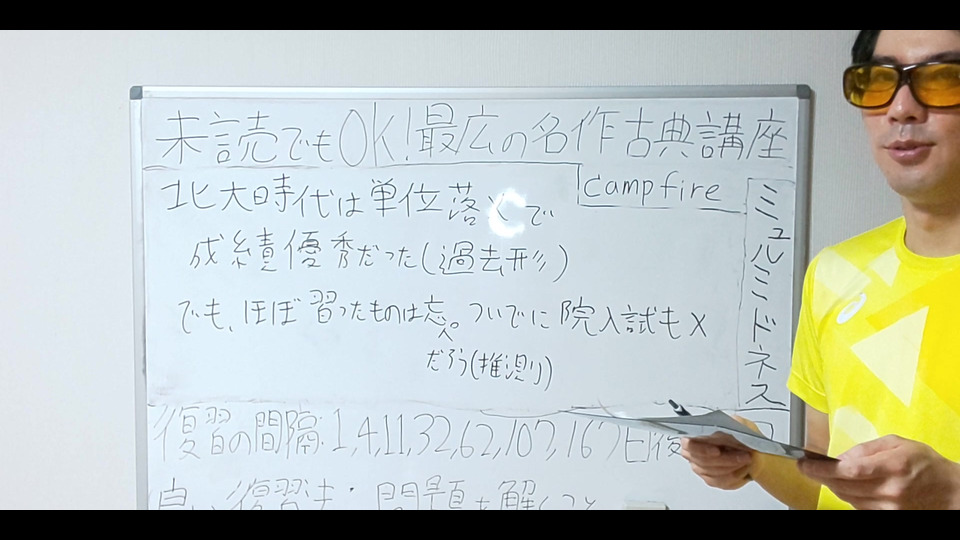 未読でもOK!最広の名作古典講座
campfire
北大時代は単位落とで
成績優秀だった(過去形)
でも、ほぼ習ったものは忘。ついでに院入試も×
だろう(推測)
ミュルミドネス
復習の間隔:1,4,11,32,62,107,167日後
良い復習法:問題を解くこと